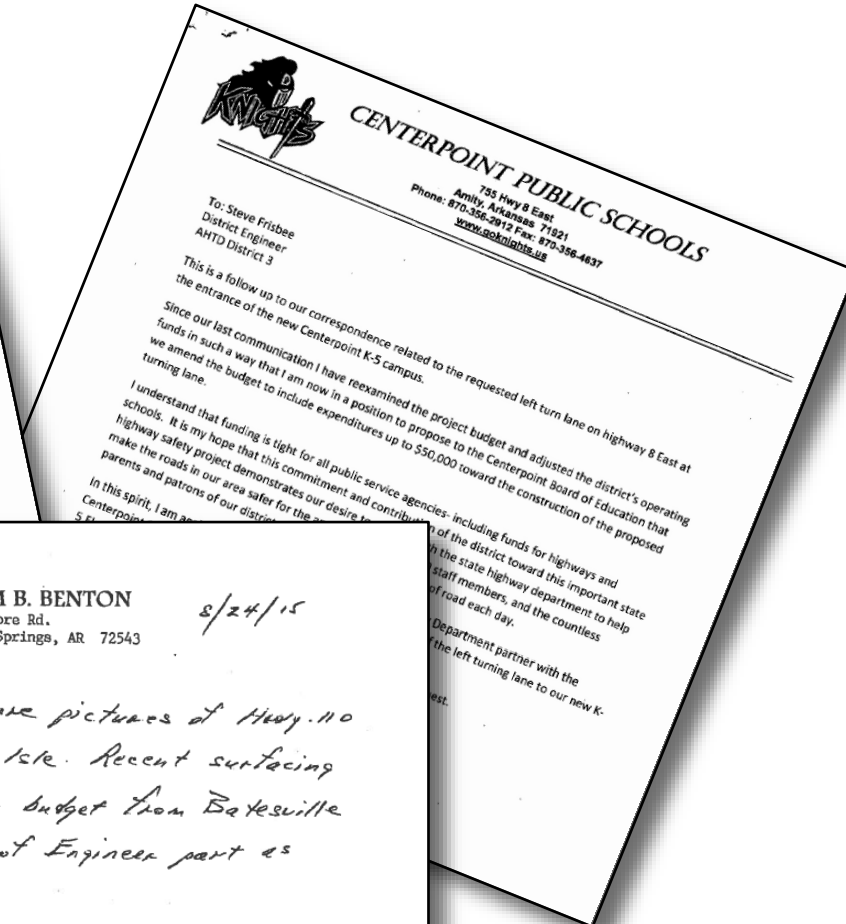 KNIGHTS
CENTERPOINT PUBLIC SCHOOLS
755 Hwy 8 East
Amity, Arkansas 71921
Phone: 870-356-2912 Fax: 870-356-4637
www.goknights.us
To: Steve Frisbee
District Engineer
AHTD District 3
This is a follow up to our correspondence related to the requested left turn lane on highway 8 East at
the entrance of the new Centerpoint K-5 campus.
Since our last communication I have reexamined the project budget and adjusted the district's operating
funds in such a way that I am now in a position to propose to the Centerpoint Board of Education that
we amend the budget to include expenditures up to $50,000 toward the construction of the proposed
turning lane.
I understand that funding is tight for all public service agencies- including funds for highways and
schools. It is my hope that this commitment and contribution of the district toward this important state
highway safety project demonstrates our desire to the state highway department to help
make the roads in our area safer for the staff members, and the countless
parents and patrons of our district of road each day.
In this spirit, I am Department partner with the
Centerpoint of the left turning lane to our new K-
B. BENTON
Rd.
Springs, AR 72543
8/24/15
pictures of Hwy. 110
Isle. Recent surfacing
budget from Batesville
of Engineer part as